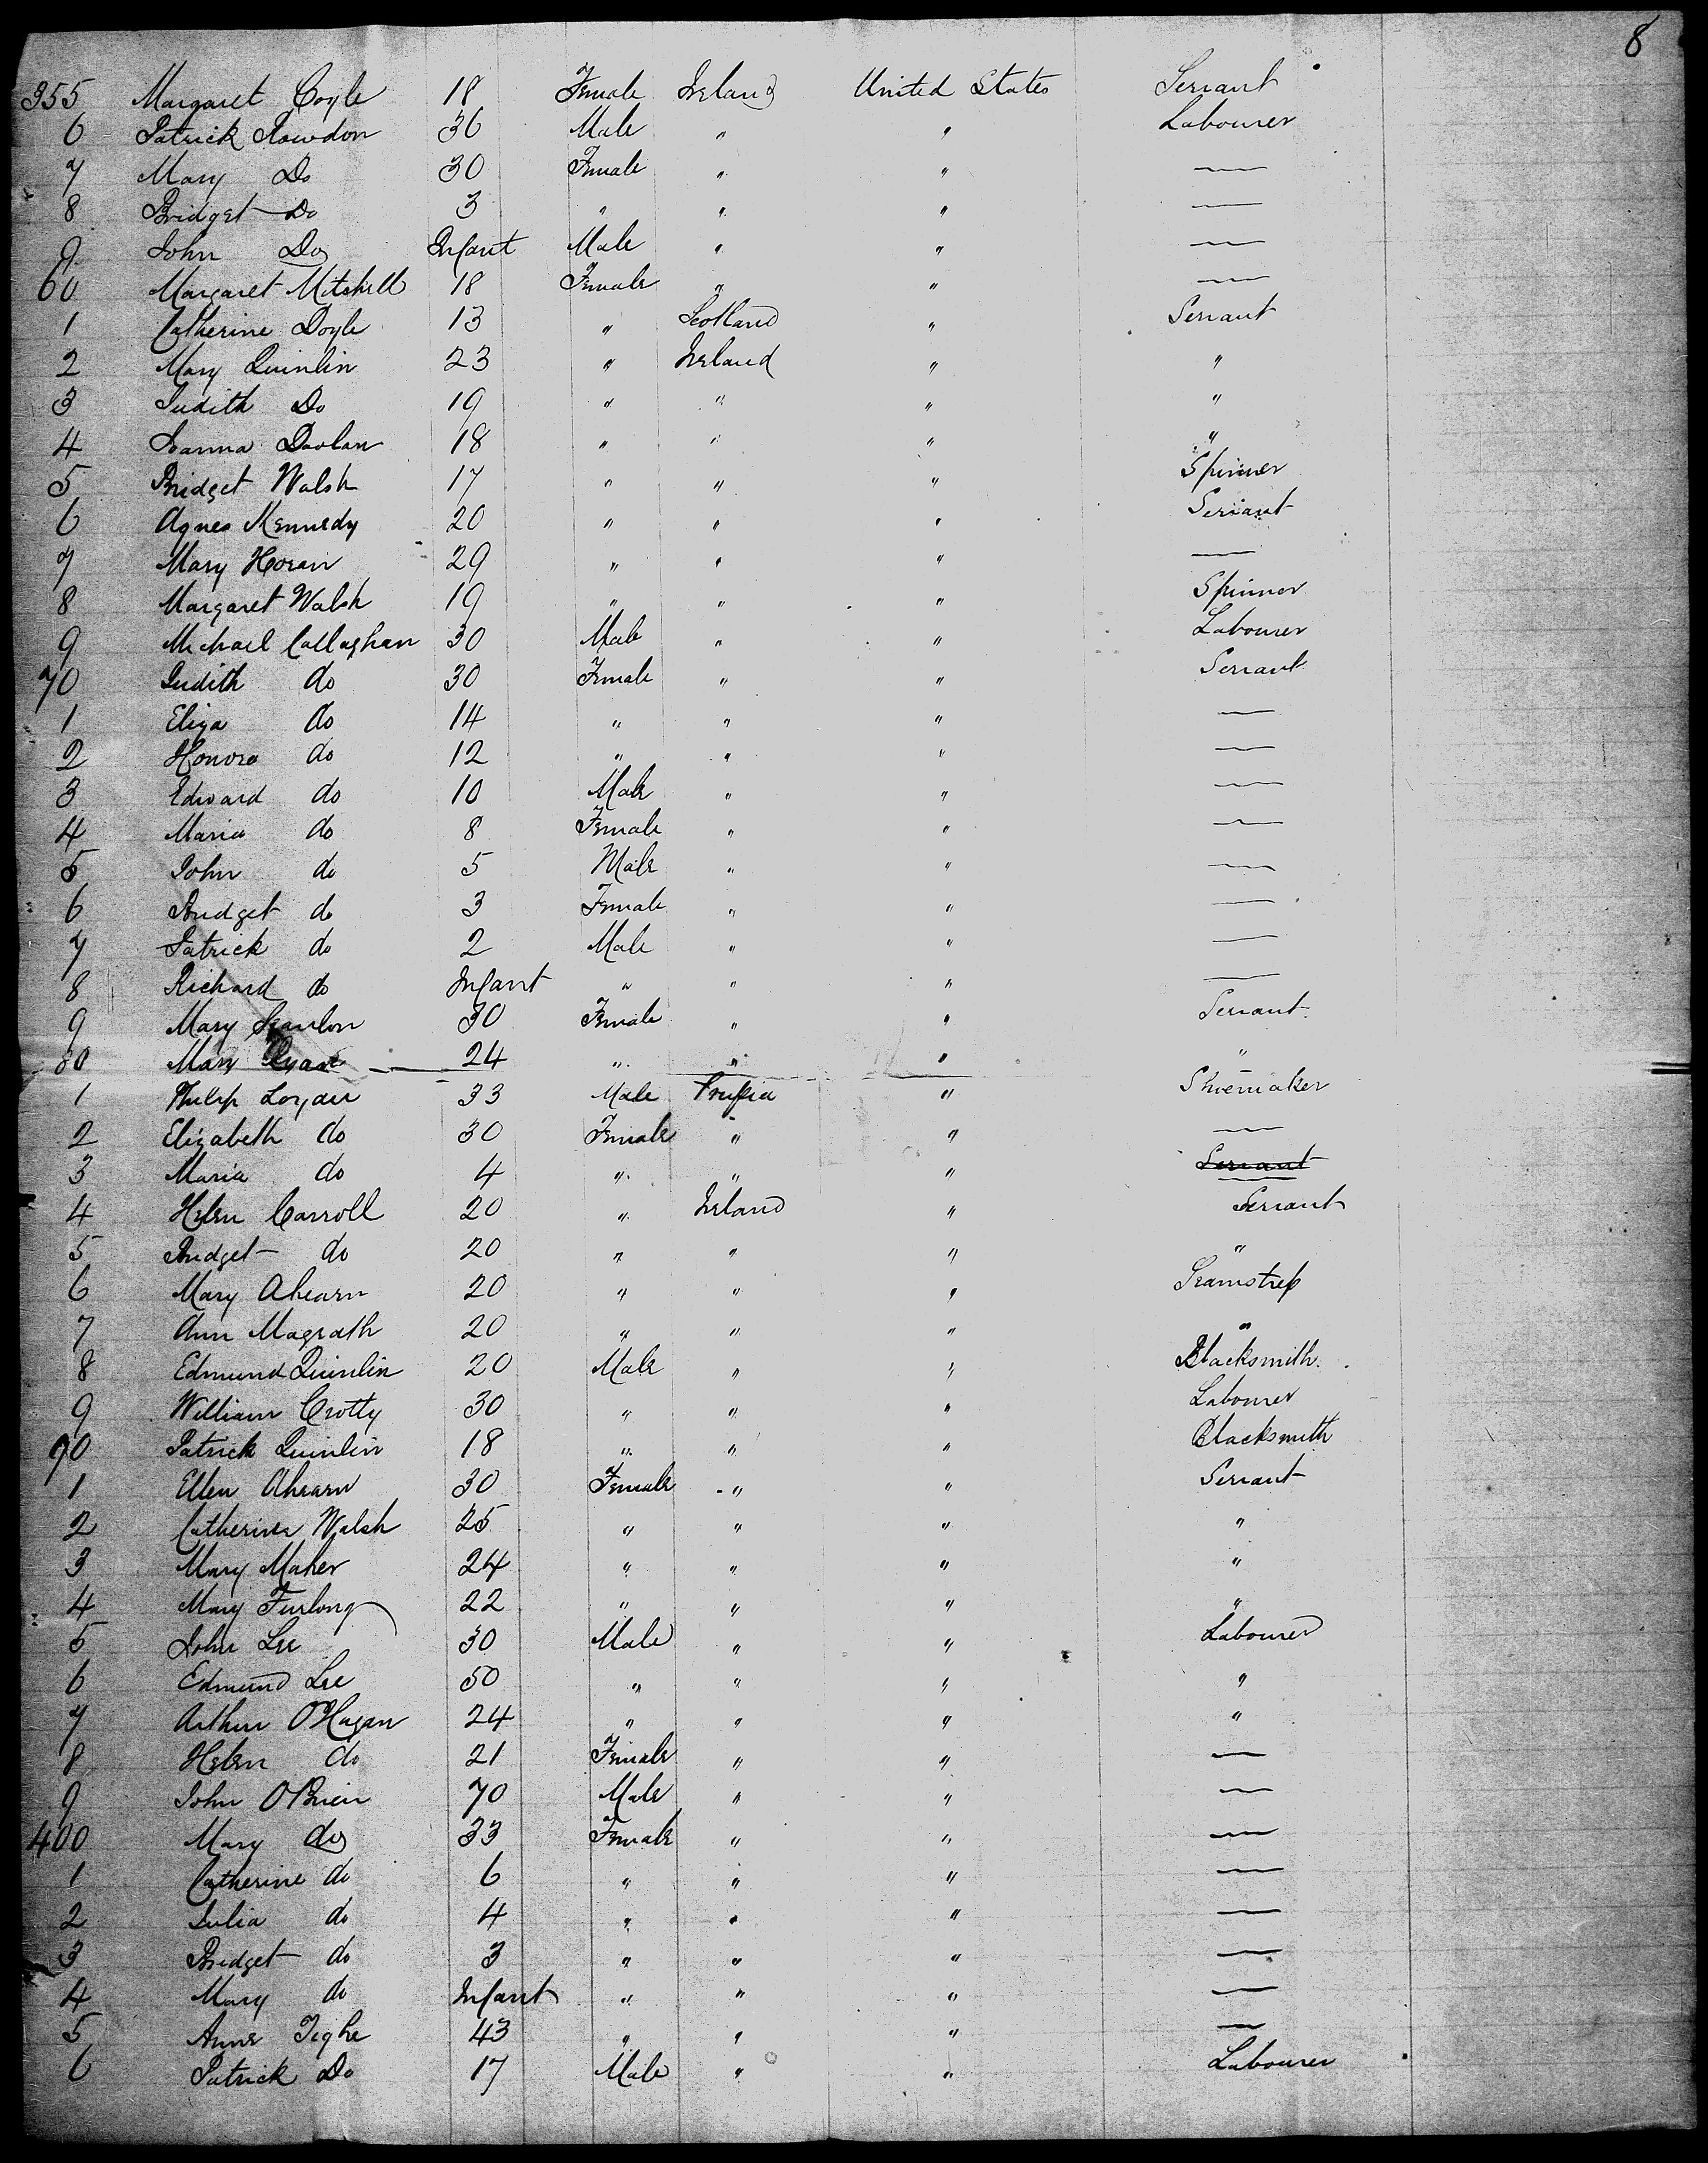 8
355 Margaret Coyle 18 Female Ireland United States Servant
6 Patrick Rowdon 36 Male " " Labourer
7 Mary Do 30 Female " " —
8 Bridget Do 3 " " " —
9 John Do Infant Male " " —
60 Margaret Mitchell 18 Female " " —
1 Catherine Doyle 13 " Scotland " Servant
2 Mary Quinlin 23 " Ireland " "
3 Judith Do 19 " " " "
4 Joanna Doolan 18 " " " "
5 Bridget Walsh 17 " " " Spinner
6 Agnes Kennedy 20 " " " Servant
7 Mary Horan 29 " " " —
8 Margaret Walsh 19 " " " Spinner
9 Michael Callaghan 30 Male " " Labourer
70 Judith do 30 Female " " Servant
1 Eliza do 14 " " " —
2 Honora do 12 " " " —
3 Edward do 10 Male " " —
4 Maria do 8 Female " " —
5 John do 5 Male " " —
6 Bridget do 3 Female " " —
7 Patrick do 2 Male " " —
8 Richard do Infant " " " —
9 Mary Scanlon 30 Female " " Servant
80 Mary Ryan 24 " " " "
1 Philip Logan 33 Male Prussia " Shoemaker
2 Elizabeth do 30 Female " " —
3 Maria do 4 " " " Servant
4 Helen Carroll 20 " Ireland " Servant
5 Bridget do 20 " " " "
6 Mary Ahearn 20 " " " Seamstress
7 Ann Magrath 20 " " " "
8 Edmund Quinlin 20 Male " " Blacksmith
9 William Crotty 30 " " " Labourer
90 Patrick Quinlin 18 " " " Blacksmith
1 Ellen Ahearn 30 Female " " Servant
2 Catherine Walsh 25 " " " "
3 Mary Maher 24 " " " "
4 Mary Furlong 22 " " " "
5 John Lee 30 Male " " Labourer
6 Edmund Lee 50 " " " "
7 Arthur O'Hagan 24 " " " "
8 Helen do 21 Female " " —
9 John O'Brien 70 Male " " —
400 Mary do 33 Female " " —
1 Catherine do 6 " " " —
2 Julia do 4 " " " —
3 Bridget do 3 " " " —
4 Mary do Infant " " " —
5 Anne Tighe 43 " " " —
6 Patrick Do 17 Male " " Labourer